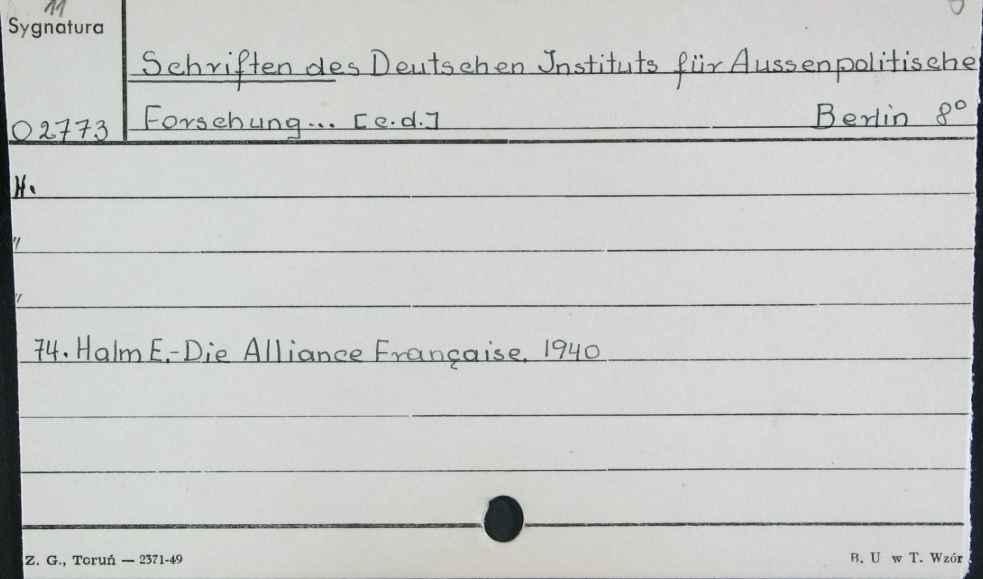 11
Sygnatura
Schriften des Deutschen Instituts für Aussenpolitische
O2773 Forschung... [c.d.] Berlin 8°
H.
"
"
74. Halm E.-Die Alliance Française. 1940
Z. G., Toruń — 2371-49 B. U w T. Wzór